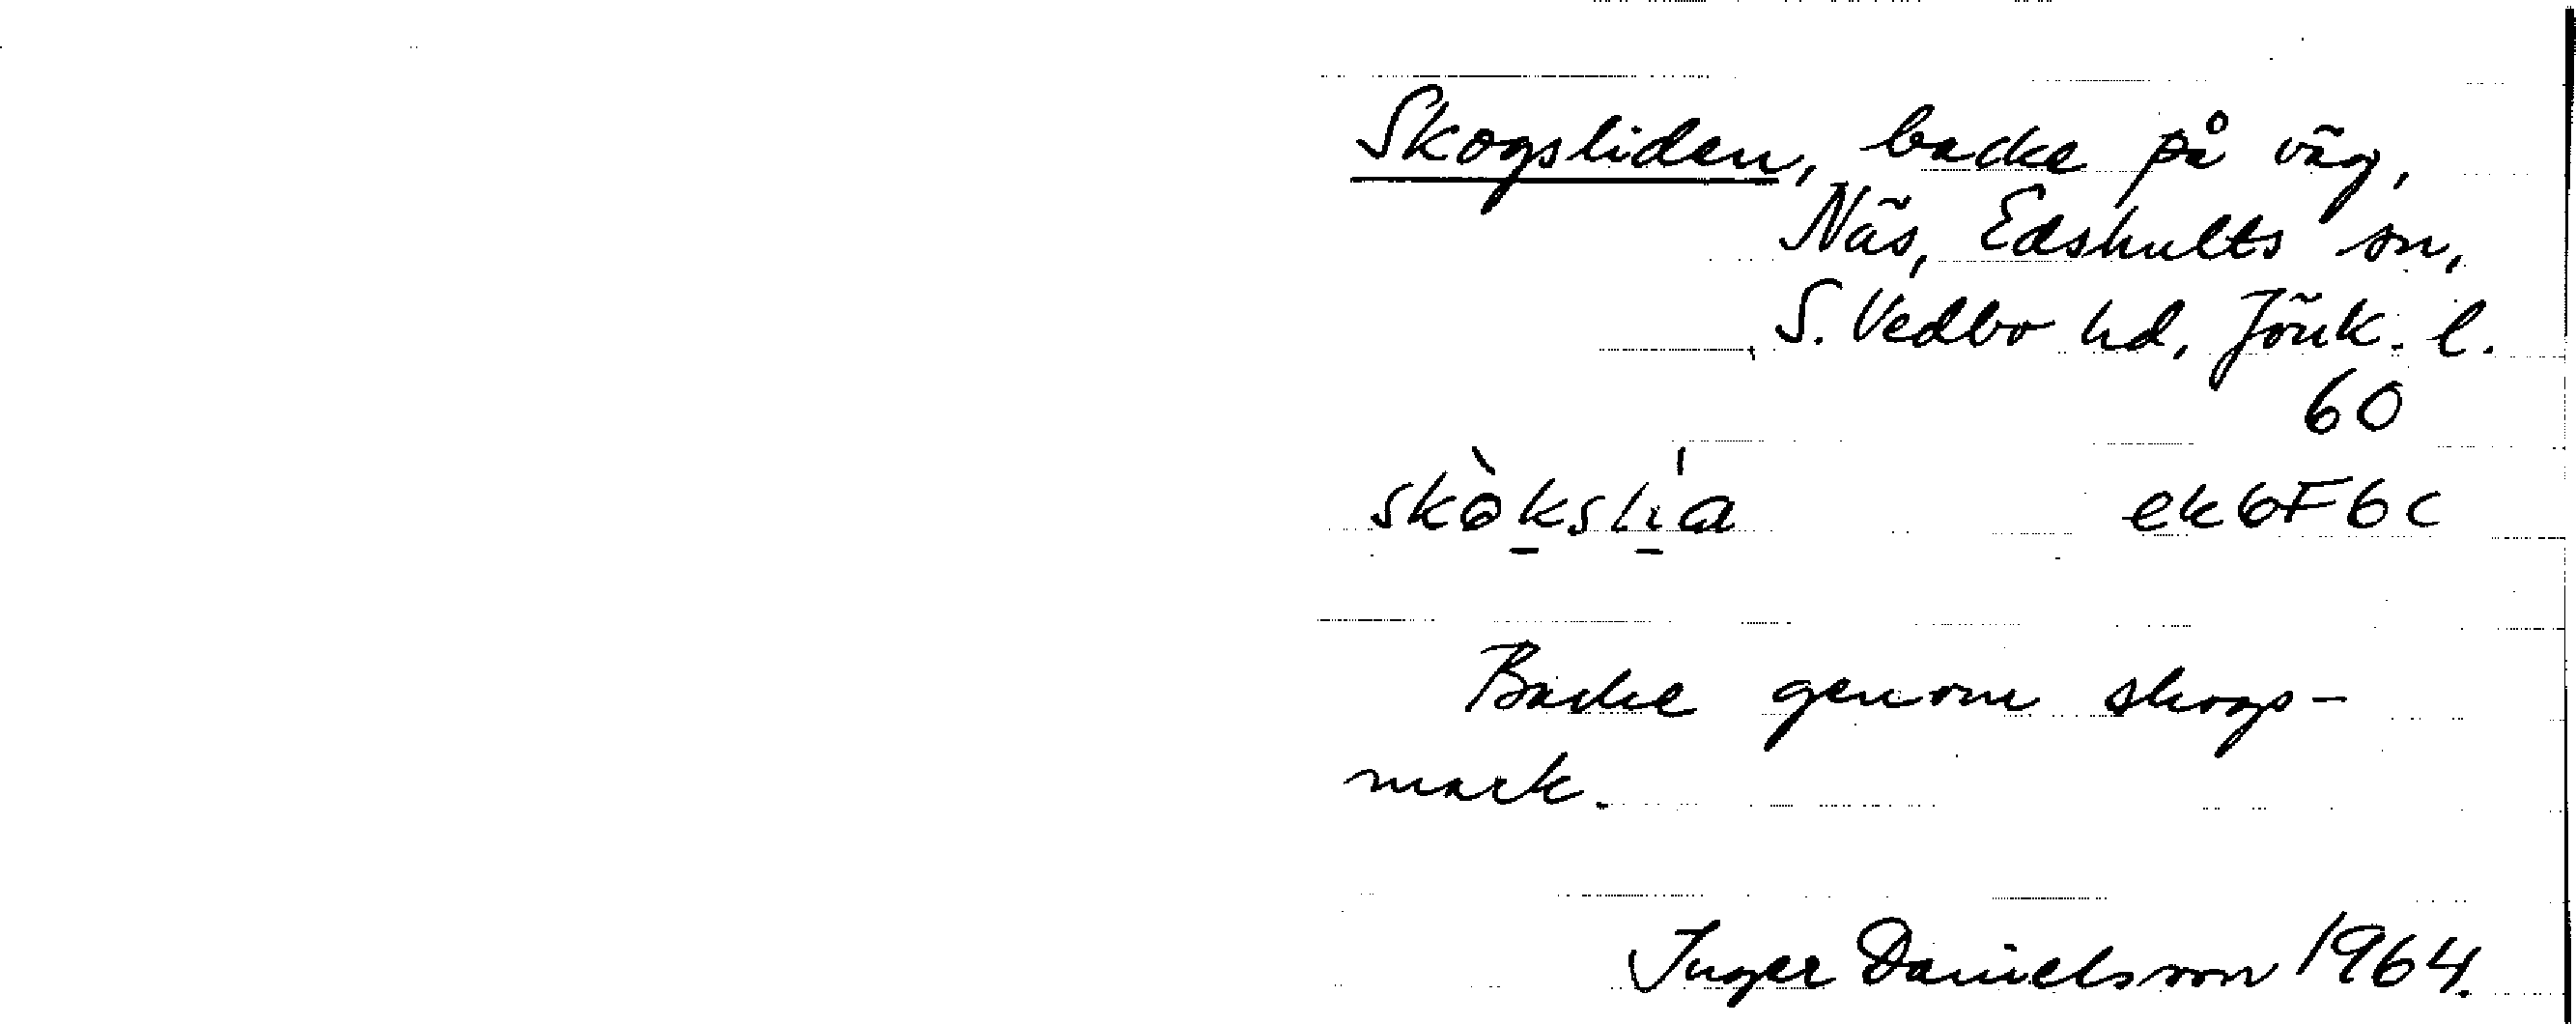 Skogsliden, backe på väg,
Näs, Edshults sn,
S. Vedbo hd. Jönk. l.
60
skò̱ksli̱'a ek6F6c
Backe genom skogs-
mark.
Inger Danielsson 1964.